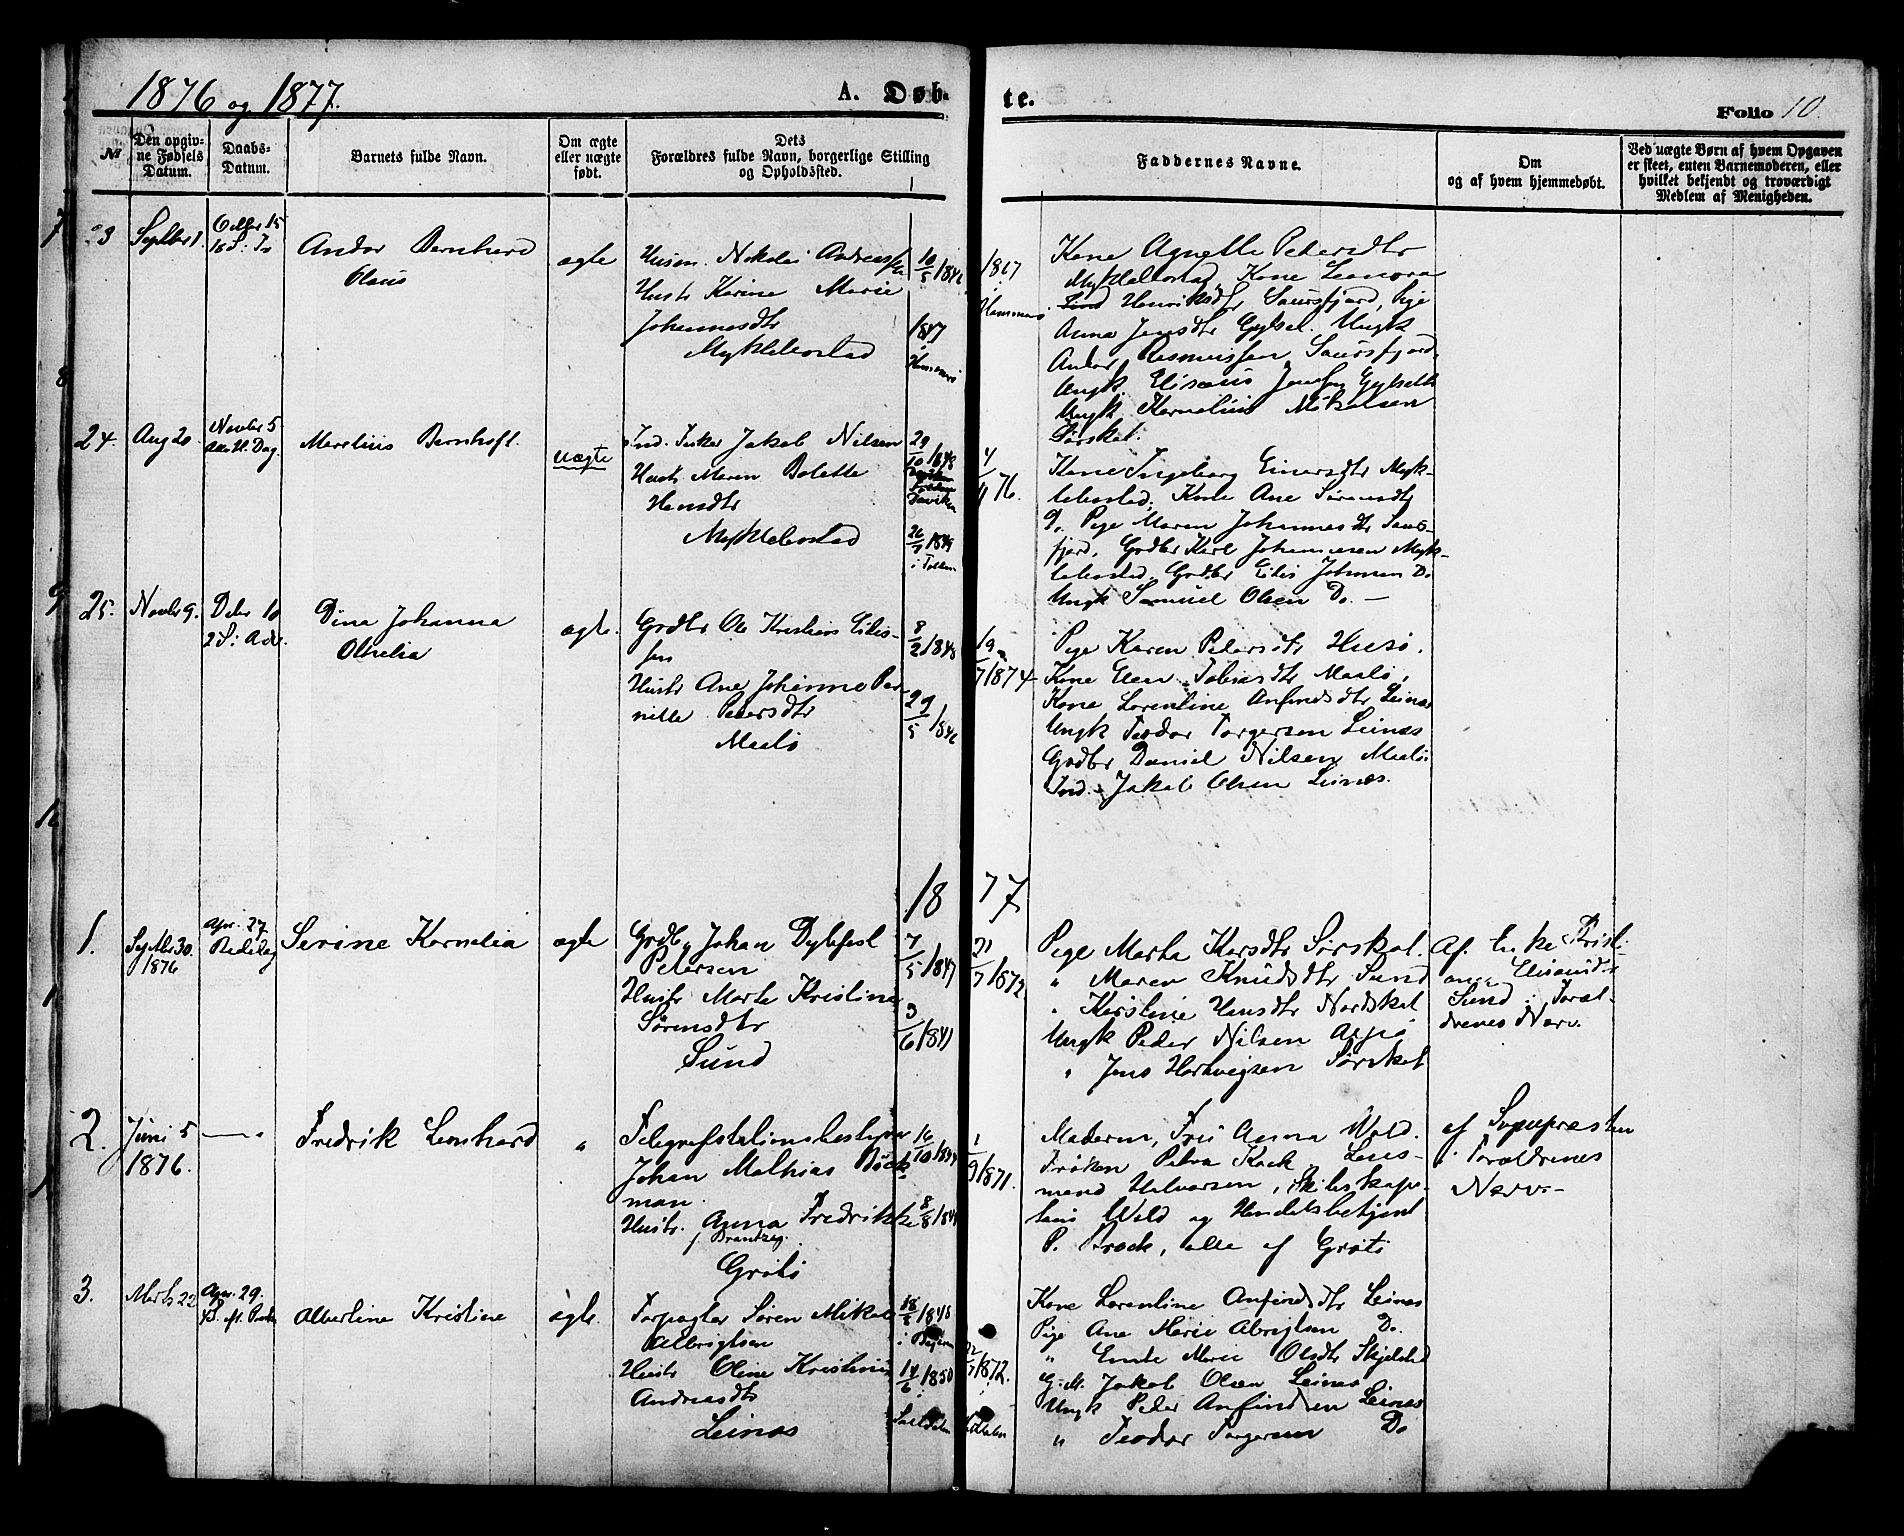 1876 og 1877.
A. Døb-
te.
Folio 10.
№
Den opgiv-
ne Fødsels
Datum.
Daabs-
Datum.
Barnets fulde Navn.
Om ægte
eller uægte
født.
Dets
Forældres fulde Navn, borgerlige Stilling
og Opholdssted.
Faddernes Navne.
Om
og af hvem hjemmedøbt.
Ved uægte Børn af hvem Opgaven
er skeet, enten Barnemoderen, eller
hvilket bekjendt og troværdigt
Medlem af Menigheden.
23
Septbr 1.
Octbr 15
Andor Bernhard
Olaus
ægte
Husm. Nikolai Andreassen
Hustr Karine Marie
Johannesdtr
Myklebostad
10/5 1846
1847
Hammerø
1867
Hammerø
Kone Agnette Petersdtr
Myklebostad, Kone Leonora
Henriksdtr Saursfjord, Pige
Anna Jensdtr Gylset. Ungk
Andor Rasmussen Saursfjord.
Ungk. Elisæus Jensen Gylseth
Ungk Kornelius Mikalsen
Sørskot.
24.
Aug 20.
Novbr 5
Alle H. Dag.
Meretius Bernhoft.
uægte
Ind. Jakob Nilsen
Hustr Maren Bolette
Hansdtr
Myklebostad
29/10 1848
26/7 1849
i Folden
4/4 76.
Kone Ingeborg Einersdtr Myk-
lebostad, Kone Ane Sørensdtr
Do. Pige Maren Johannesdtr Saurs-
fjord. Grdbr Karl Johannesen Myk-
lebostad. Grdbr Eilis Johnsen Do
Ungk Samuel Olsen Do. —
25.
Novbr 9.
Debr 10
2 S: Adv.
Dina Johanna
Olnelia
ægte.
Grdbr Ole Kristian Eilis-
sen
Hustr Ane Johanna Per-
nille Petersdtr
Maalø
8/2 1848
29/5 1846
19/7 1874
Pige Karen Petersdtr Husø.
Kone Elen Tobiasdtr Maalø,
Kone Lorentine Anfindsdtr Leinæs
Ungk Teodor Torgersen Leinæs
Grdbr Daniel Nilsen Maalø.
Ind. Jakob Olsen Leinæs.
18 77
1.
Septbr 30.
1876
Apr. 27
Bededag
Serine Kornelia
ægte
Grdbr Johan Dyblfest
Petersen
Hustr Marte Kristina
Sørensdtr
Sund
7/5 1847
3/6 1841
21/7 1872
Pige Marta Karsdtr Sørskot.
" Maren Knudsdtr Sund
" Kirstine Hansdtr Nordskot
Ungk Peder Nilsen
" Jens Hartvigsen Sørskot
Af Enke Kristi-
ane
Sund i Foræl-
drenes Nærv.
2.
Juni 5
1876.
—
Fredrik Leonhard
"
Telegrafstationsbestyrer
Johan Mathias Böck-
man.
Hustr. Anna Fredrikke
f Brantzeg.
Grøtø
16/10 1844
8/8 1844
1/9 1871.
Madamen, Fru Anna Wold.
Frøken Petra Kock Lens-
mand Halvorsen, Skibskapi-
tain Wold og Handelsbetjent
P. Brock, alle af Grøtø
af Sognepræsten
i Forældrenes
Nærv.—
3.
Marts 22
Apr. 29.
Albertine Kristine
ægte.
Forpagter Søren Mikal
Albrigtsen
Hustr Oline Kristine
Andreasdtr
Leinæs
18/5 1845
14/6 1850
Saltdalen
1872.
Kone Lorentine Anfindsdtr Leinæs
Pige Ane Marie Albrigtsen Do.
" Emte Marie Olsdtr Skjelstad
G.M. Jakob Olsen Leinæs
Ungk Peder Anfindsen Leinæs
" Teodor Torgersen Do